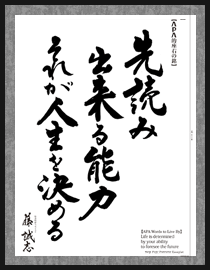 【APA的座右の銘】
先読み
出来る能力
それが人生を決める
藤 誠志
【APA Words to Live By】
Life is determined
by your ability
to foresee the future